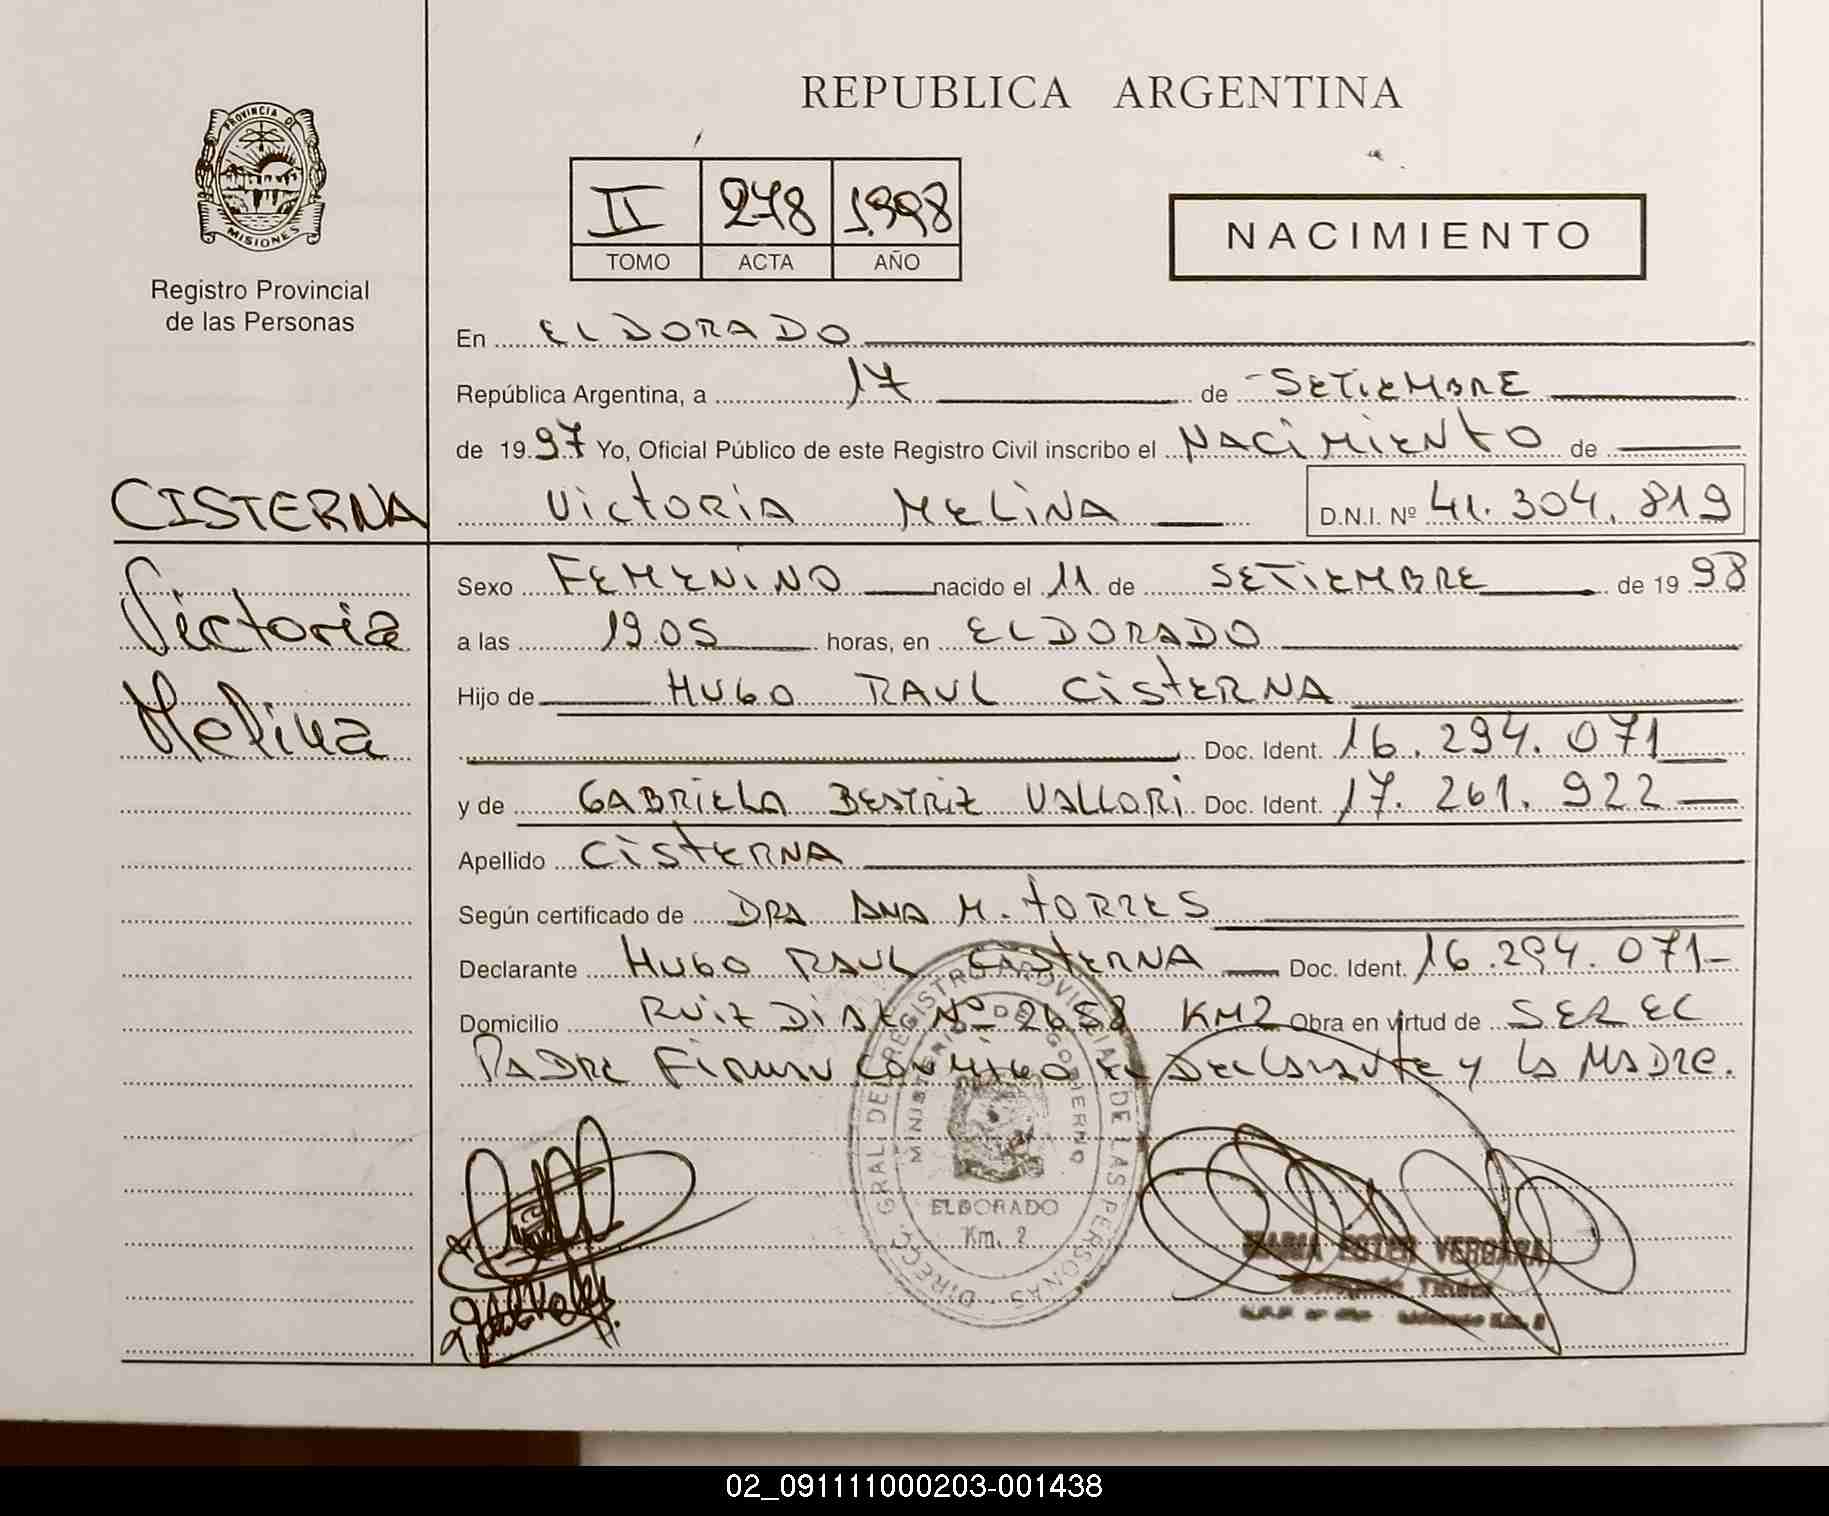 REPUBLICA ARGENTINA
PROVINCIA DE
MISIONES
Registro Provincial
de las Personas
II 278 1998
TOMO ACTA AÑO
NACIMIENTO
En ELDORADO
República Argentina, a 17 de SETIEMBRE
de 1997 Yo, Oficial Público de este Registro Civil inscribo el NACIMIENTO de
CISTERNA
VICTORIA MELINA D.N.I. Nº 41.304.819
Victoria
Melina
Sexo FEMENINO nacido el 11 de SETIEMBRE de 1998
a las 19.05 horas, en ELDORADO
Hijo de HUGO RAUL CISTERNA
Doc. Ident. 16.294.071
y de GABRIELA BEATRIZ VALLORI Doc. Ident. 17.261.922
Apellido CISTERNA
Según certificado de DRA ANA M. TORRES
Declarante HUGO RAUL CISTERNA Doc. Ident. 16.294.071
Domicilio RUIZ DIAZ Nº 2658 KM2 Obra en virtud de SER EL
PADRE FIRMAN CONMIGO EL DECLARANTE Y LA MADRE.
DIREC. GRAL. DEL REGISTRO PROVINCIAL DE LAS PERSONAS
MINISTERIO DE GOBIERNO
ELDORADO
Km. 2
MARIA ESTER VERGARA
02_091111000203-001438